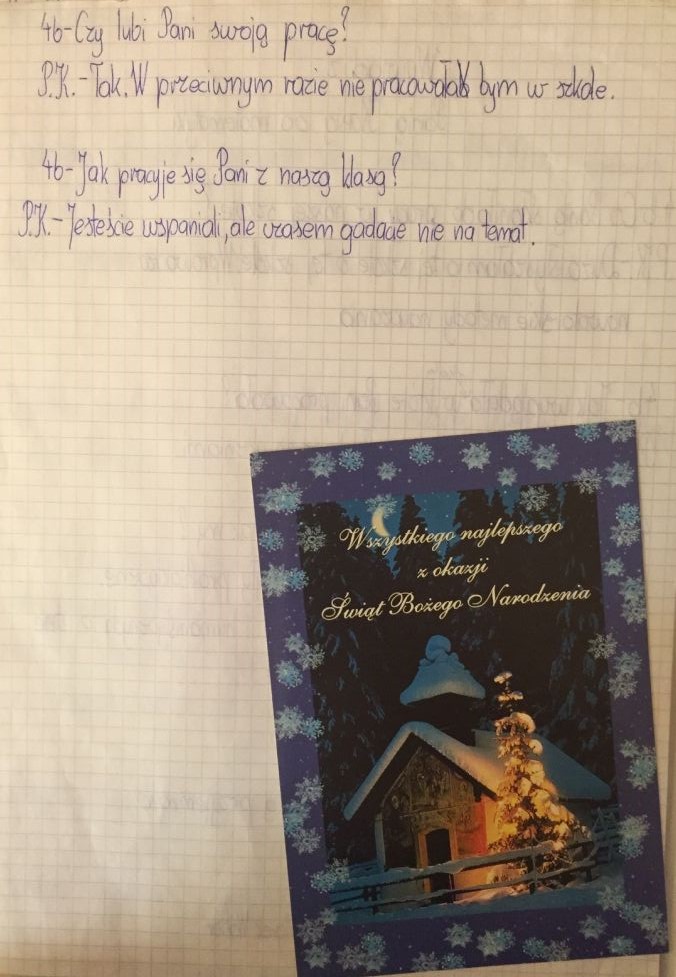 4b-Czy lubi Pani swoją pracę?
P.K.-Tak. W przeciwnym razie nie pracowałab bym w szkole.
4b-Jak pracyje się Pani z naszą klasą?
P.K.-Jesteście wspaniali, ale czasem gadacie nie na temat.
Wszystkiego najlepszego
z okazji
Świąt Bożego Narodzenia